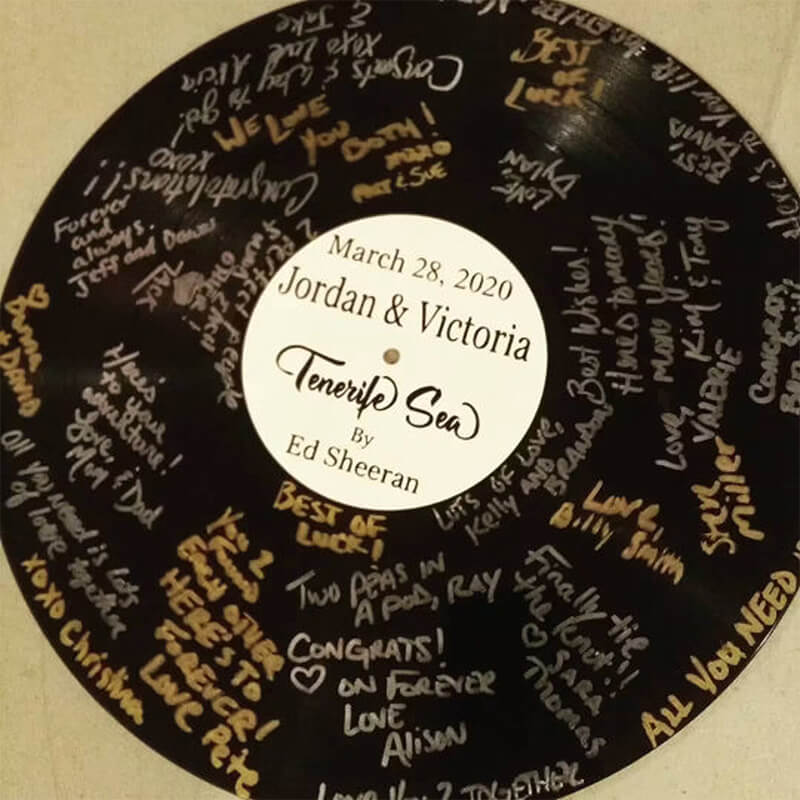 March 28, 2020
Jordan & Victoria
Tenerife Sea
By
Ed Sheeran
& Jake
xoxo Love Alicia
Congrats & way to go!
BEST
OF
LUCK!
WE LOVE
YOU
BOTH!
XOXO
ART & SUE
LOVE,
DYLAN
BEST,
DAVID
Here's to your life
TOGETHER
Congratulations!!
xoxo
Forever
and
always.
Jeff and Dawn
JACK
2 PERFECT PEOPLE
Donna
+ DAVID
Here's
to your
adventure!
Love,
Mom & Dad
All you need is lots
of love together
xoxo Christina
You 2
Found
Each other
HERE'S TO
FOREVER!
LOVE PETE
BEST OF
LUCK!
TWO PEAS IN
A POD, RAY
CONGRATS!
♡ ON FOREVER
LOVE
Alison
LOVE YOU 2 TOGETHER
Finally tie
the knot!!
♡ SARA
Thomas
LOTS OF LOVE,
Kelly AND
Brandon
Best Wishes!
Here's to many
more years!
Love,
VALERIE
Kim & Tony
CONGRATS,
Love,
Billy Smith
Steve
Miller
ALL YOU NEED